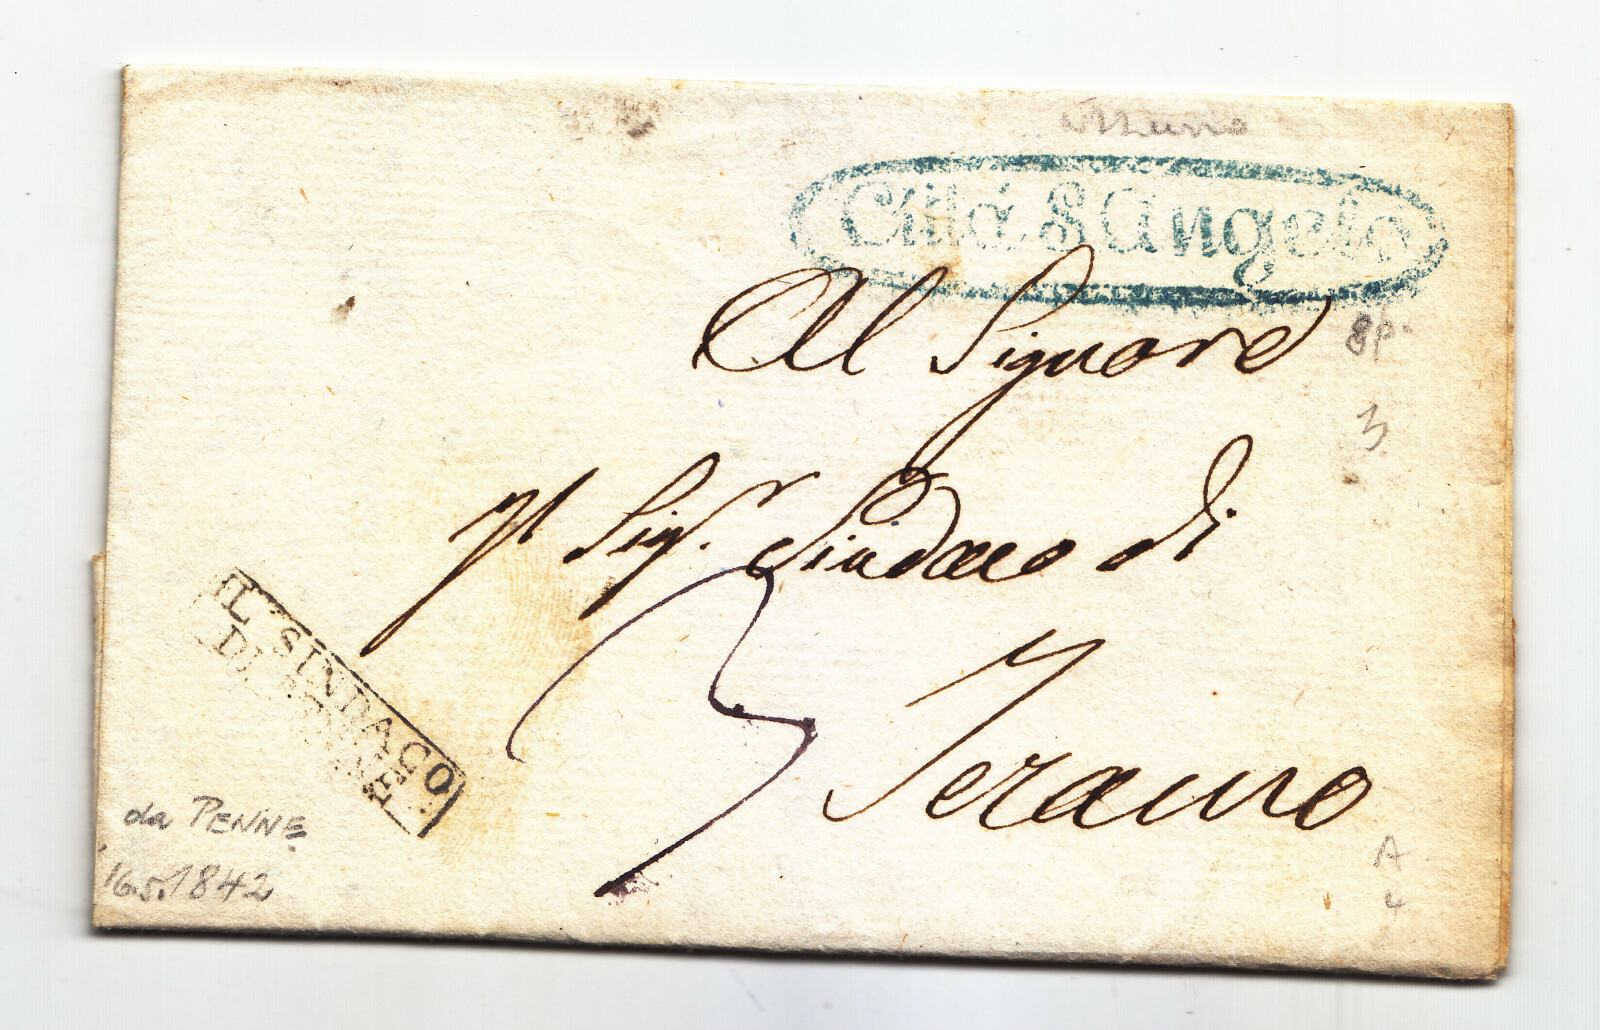 azzurro
Città S Angelo
Al Signore
8p.
3
Il Sigr. Sindaco di
3
Teramo
IL SINDACO
DI PENNE
da PENNE
16.5.1842
A
4